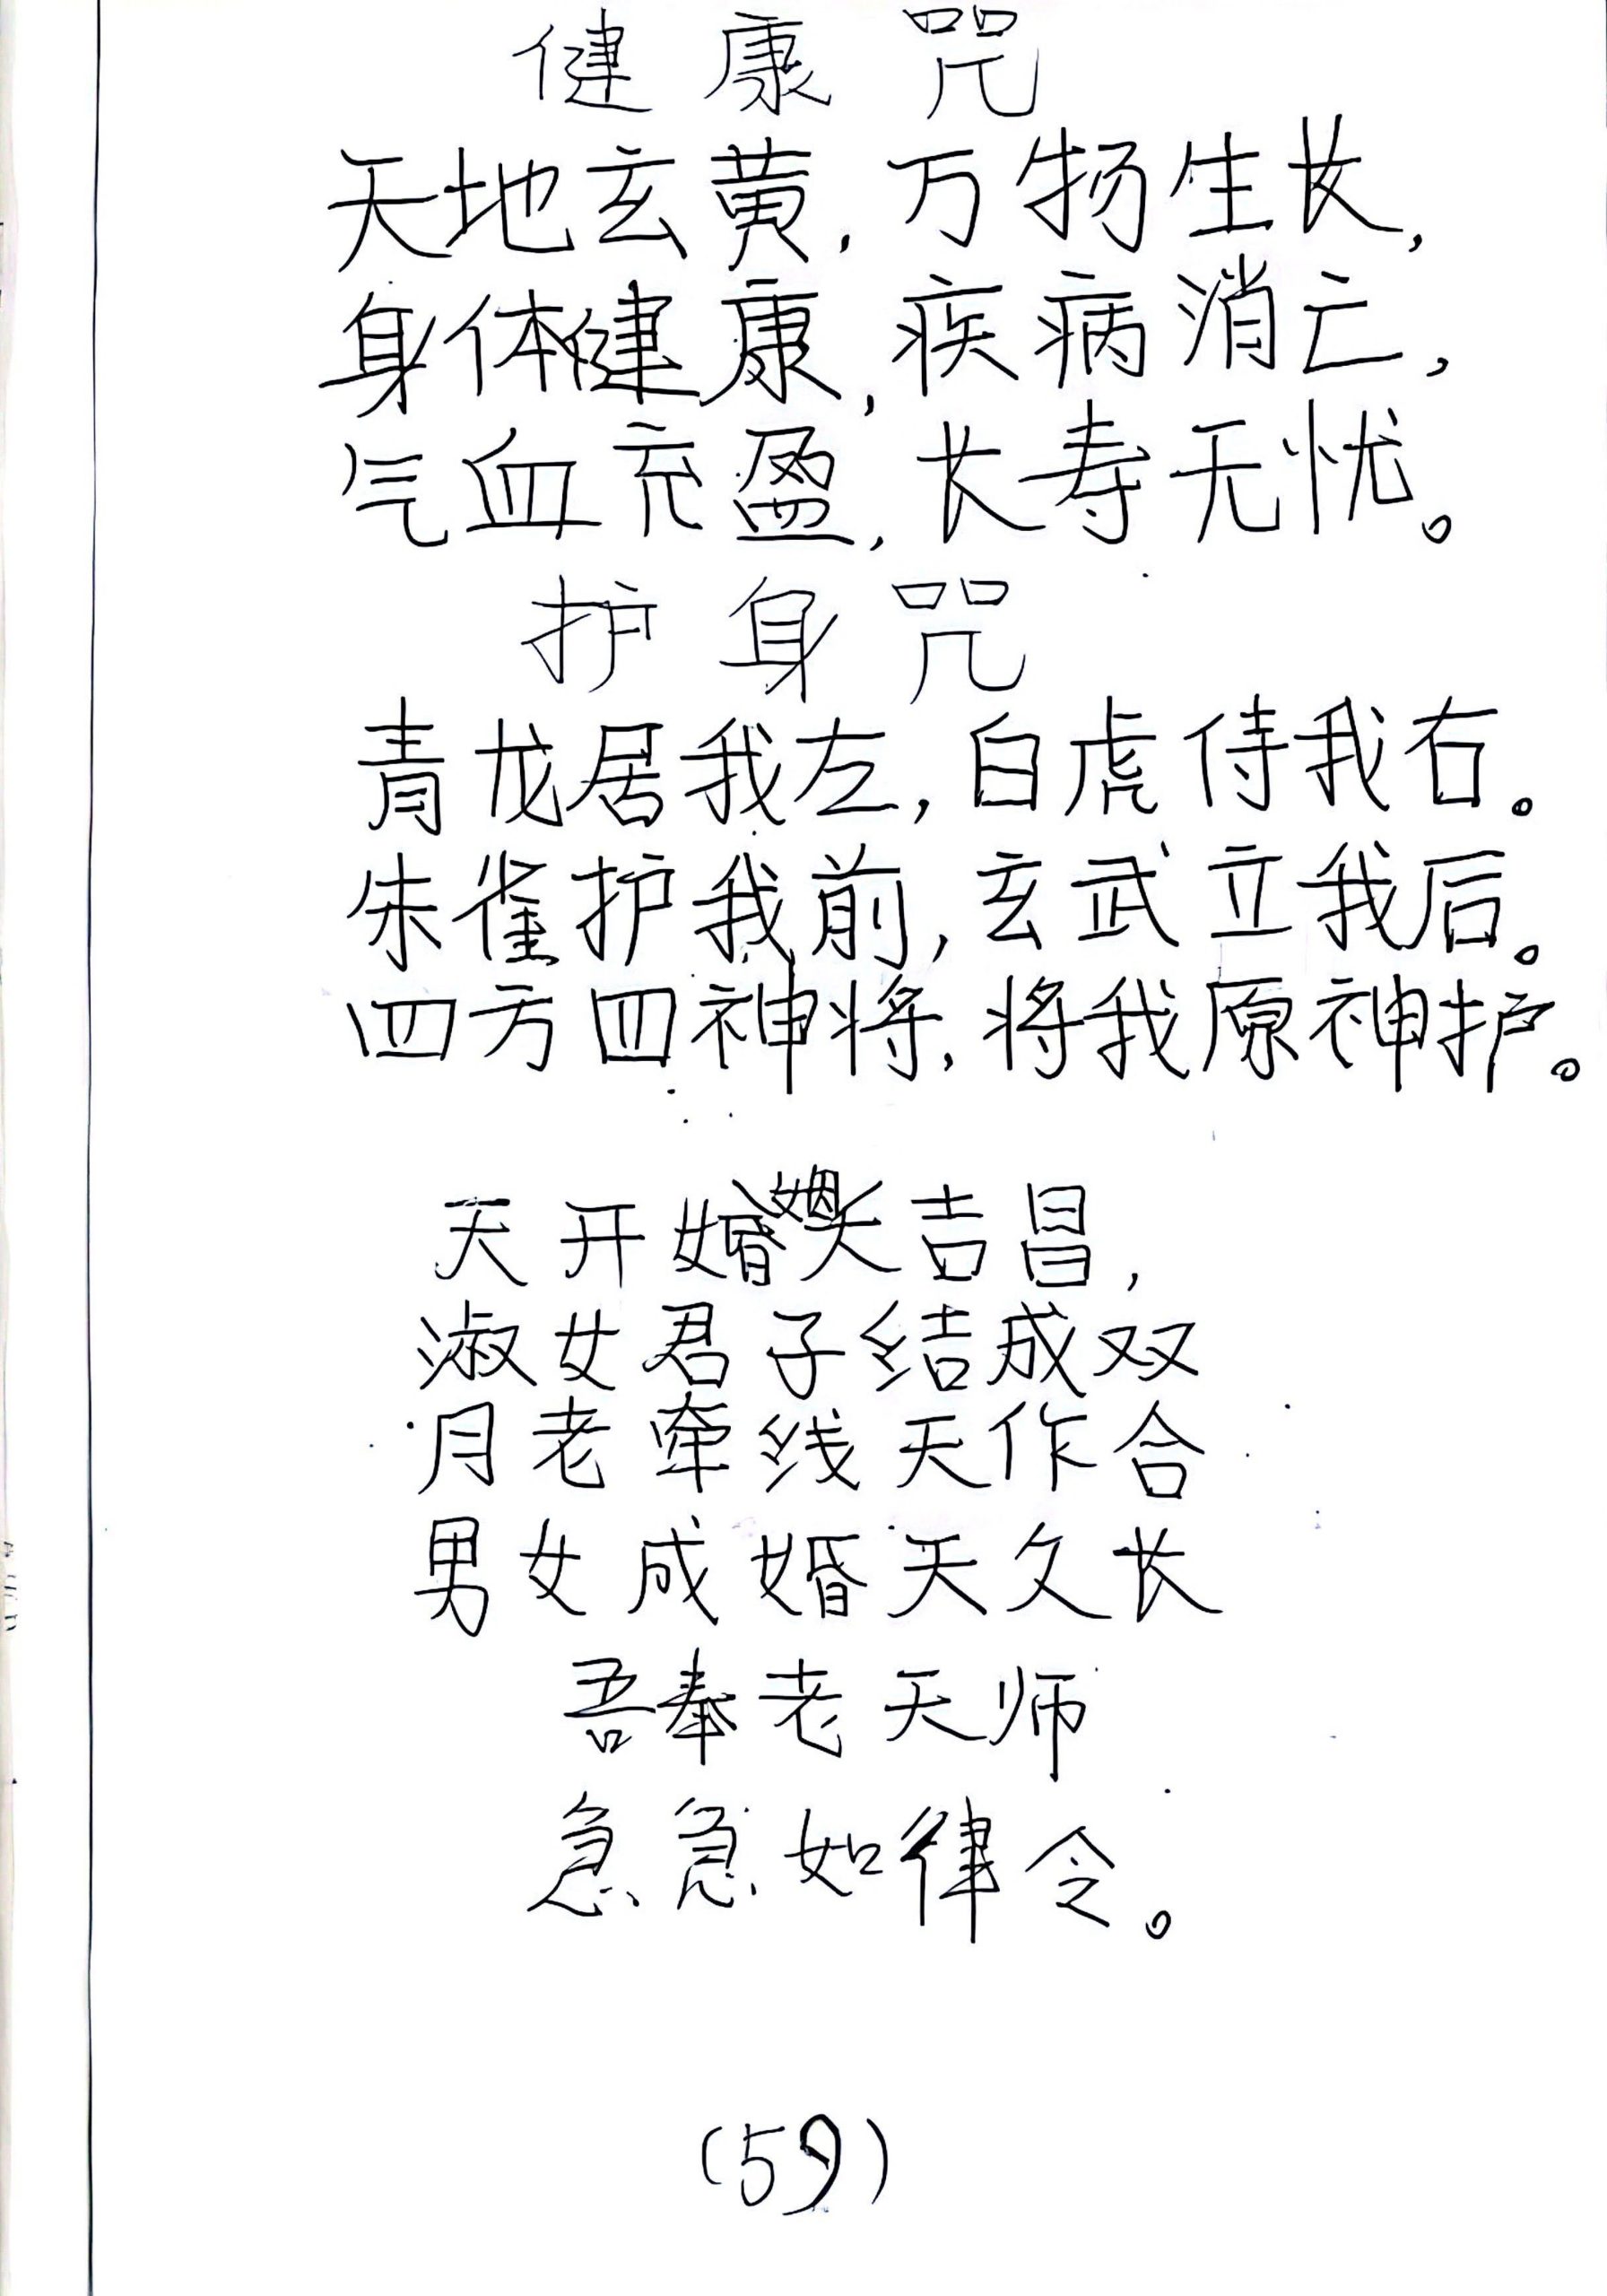 健康咒
天地玄黄,万物生长,
身体健康,疾病消亡,
气血充盈,长寿无忧。
护身咒
青龙居我左,白虎侍我右。
朱雀护我前,玄武立我后。
四方四神将,将我原神护。
天开婚姻大吉昌,
淑女君子结成双
月老牵线天作合
男女成婚天久长
吾奉老天师
急急如律令。
(59)